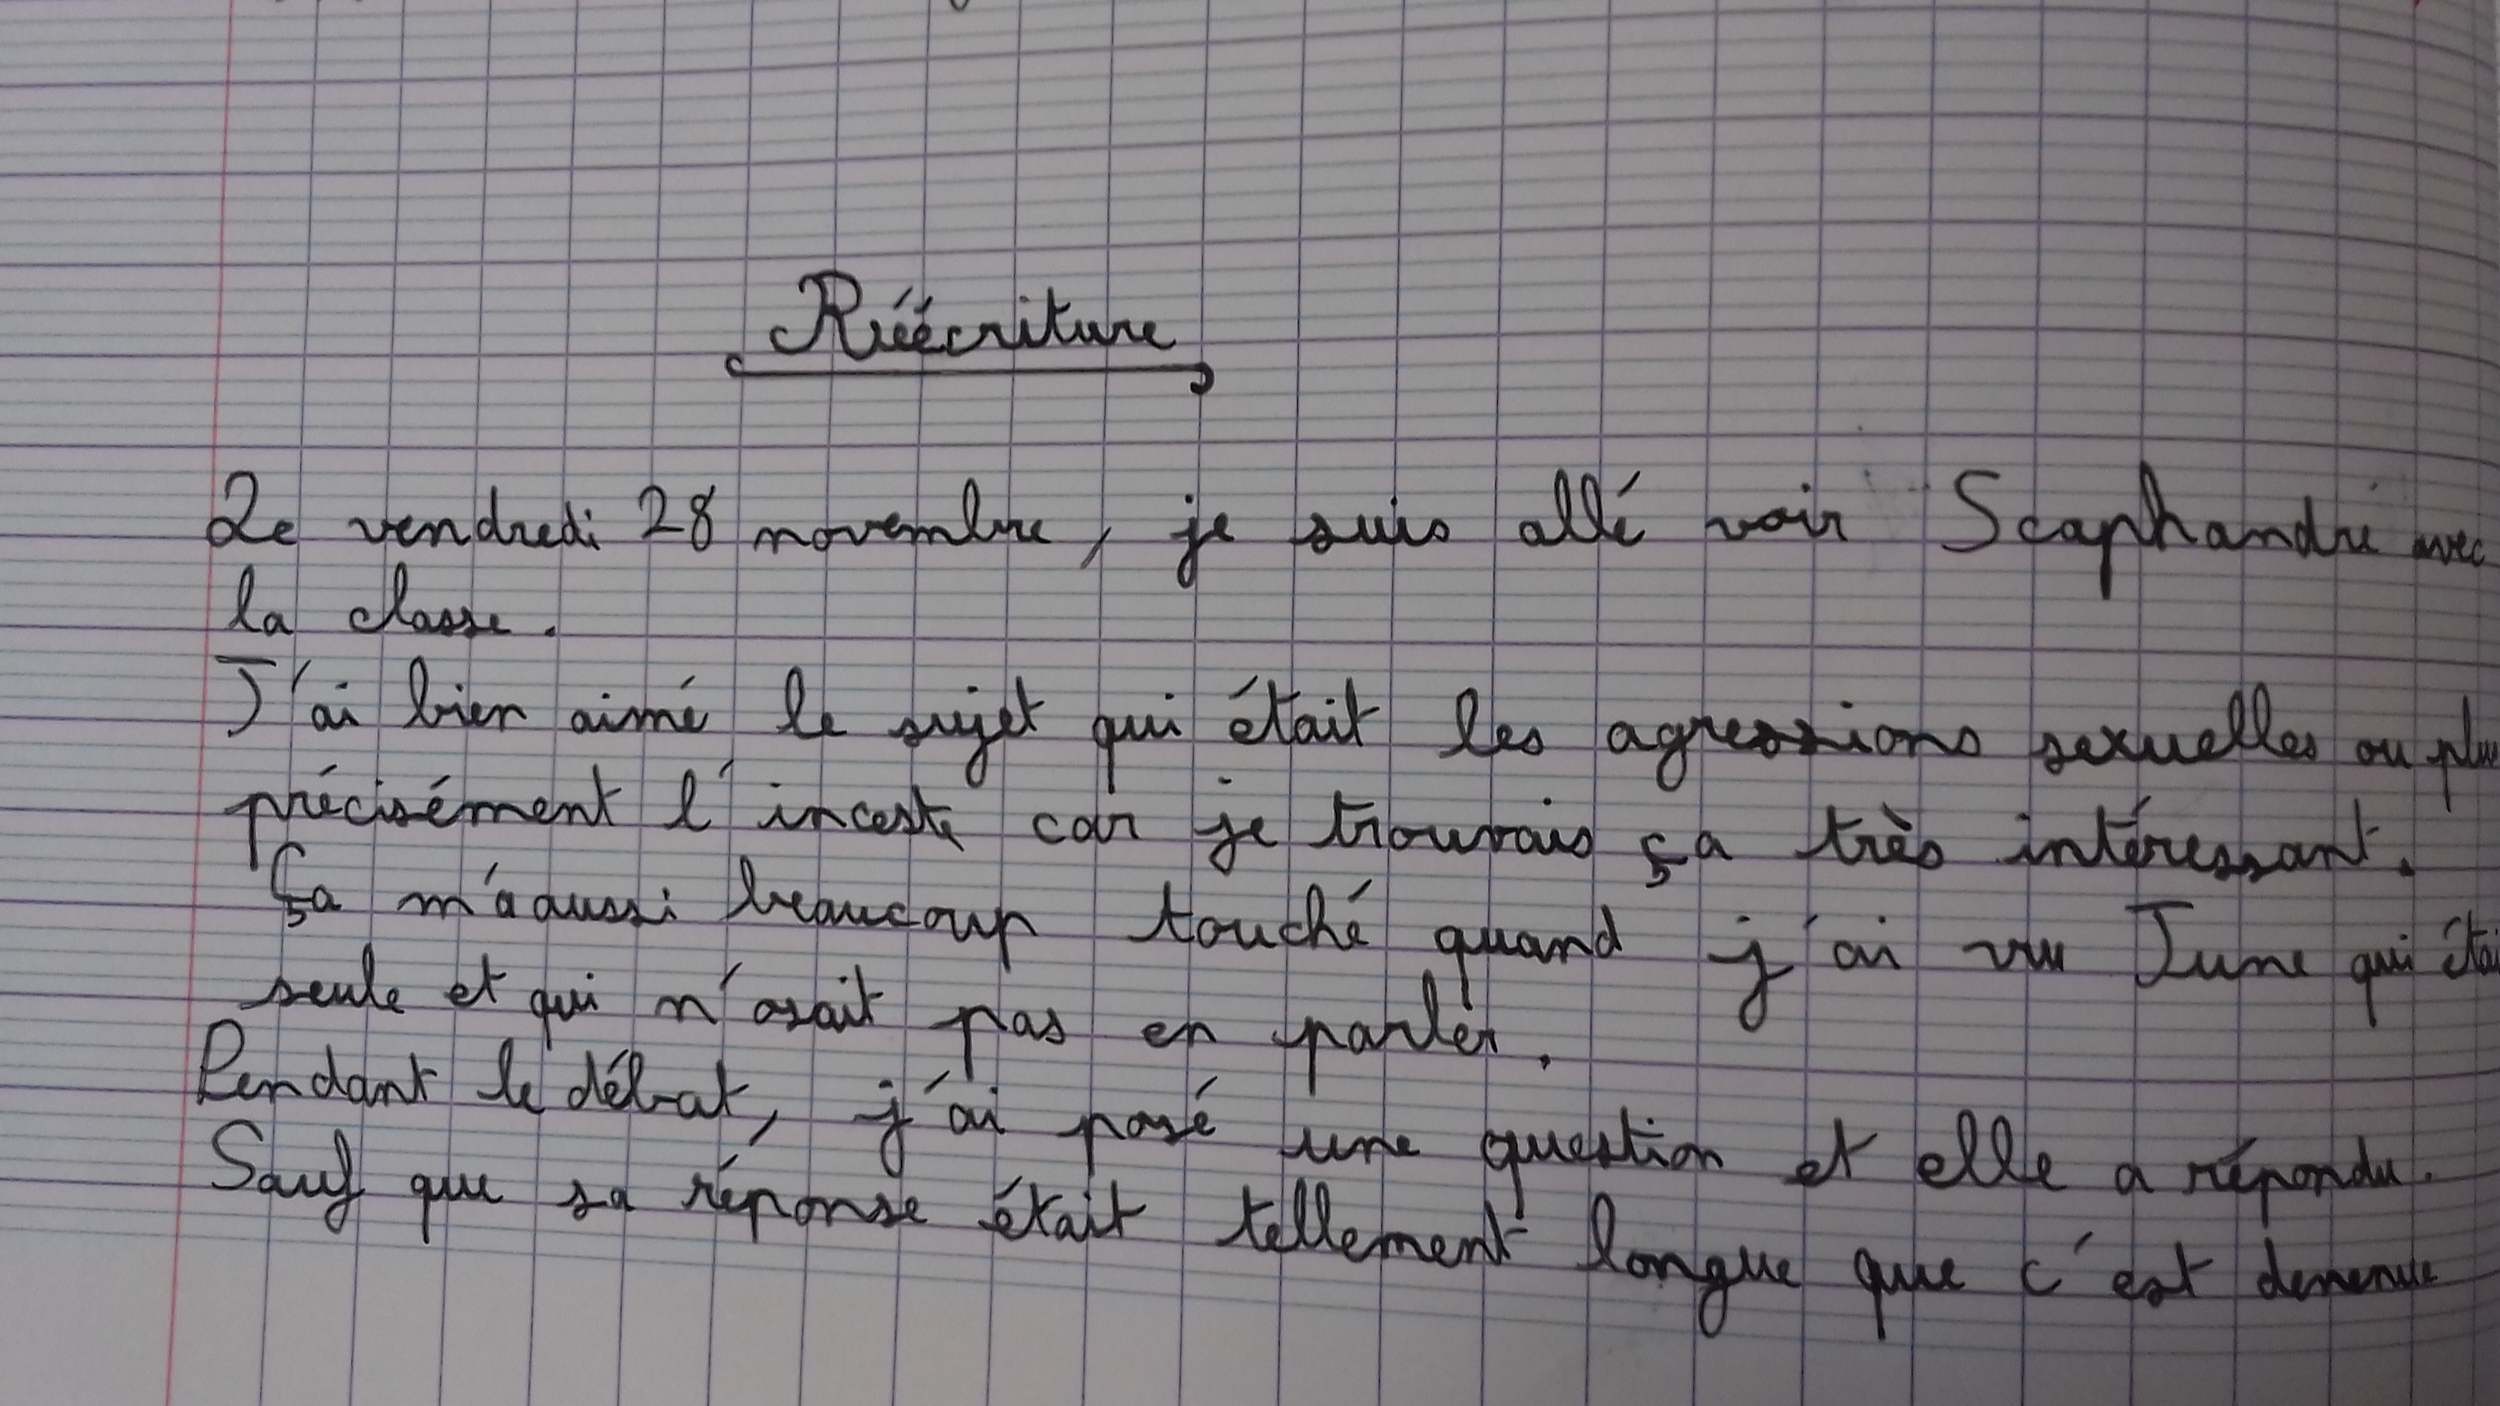 Réécriture
Le vendredi 28 novembre, je suis allé voir Scaphandre avec
la classe.
J'ai bien aimé le sujet qui était les agressions sexuelles ou plus
précisément l'inceste car je trouvais ça très intéressant.
Ça m'a aussi beaucoup touché quand j'ai vu June qui étai
seule et qui n'osait pas en parler.
Pendant le débat, j'ai posé une question et elle a répondu.
Sauf que sa réponse était tellement longue que c'est devenue